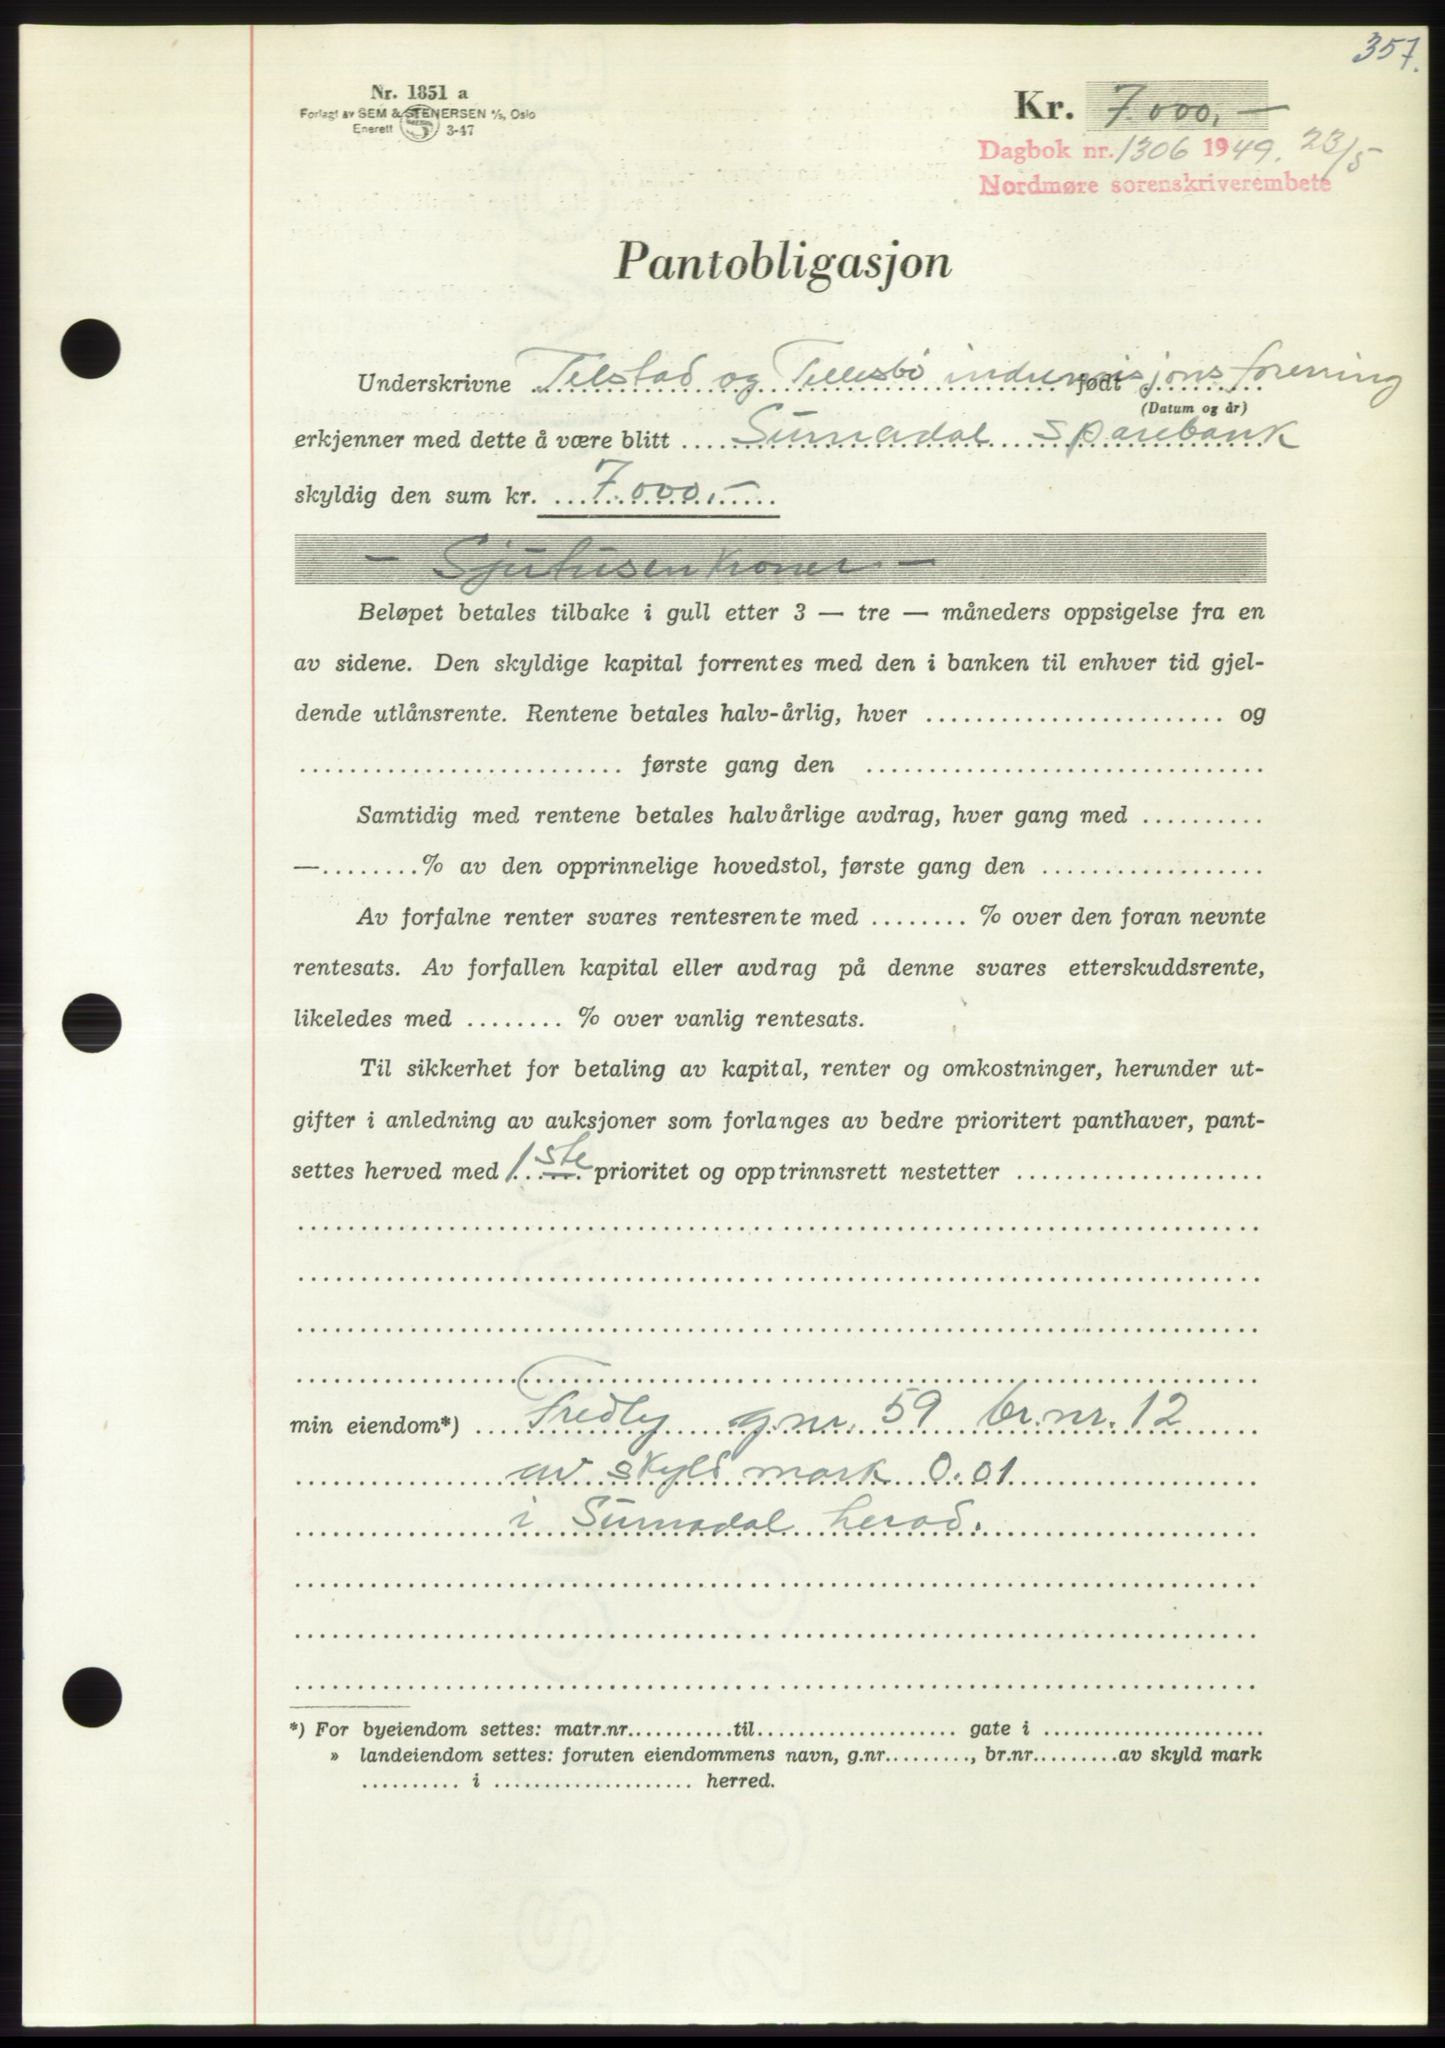 357.
Nr. 1851 a
Forlagt av SEM & STENERSEN A/S, Oslo
Enerett 3-47
Kr. 7.000,—
Dagbok nr. 1306 1949. 23/5
Nordmøre sorenskriverembete
Pantobligasjon
Underskrivne Telstad og Tellesbø indremisjonsforening født
(Datum og år)
erkjenner med dette å være blitt Surnadal sparebank
skyldig den sum kr. 7.000,—
— Sjutusen kroner —
Beløpet betales tilbake i gull etter 3 — tre — måneders oppsigelse fra en
av sidene. Den skyldige kapital forrentes med den i banken til enhver tid gjel-
dende utlånsrente. Rentene betales halv-årlig, hver ........................ og
.......................... første gang den ................................
Samtidig med rentene betales halvårlige avdrag, hver gang med ..........
—........% av den opprinnelige hovedstol, første gang den ..................
Av forfalne renter svares rentesrente med ........ % over den foran nevnte
rentesats. Av forfallen kapital eller avdrag på denne svares etterskuddsrente,
likeledes med ........ % over vanlig rentesats.
Til sikkerhet for betaling av kapital, renter og omkostninger, herunder ut-
gifter i anledning av auksjoner som forlanges av bedre prioritert panthaver, pant-
settes herved med 1ste prioritet og opptrinnsrett nestetter ....................
min eiendom*) Fredly g.nr. 59 br.nr. 12
av skyld mark 0.01
i Surnadal herad.
*) For byeiendom settes: matr.nr...........til.................... gate i ......................
» landeiendom settes: foruten eiendommens navn, g.nr........., br.nr.........av skyld mark
.......... i .................... herred.